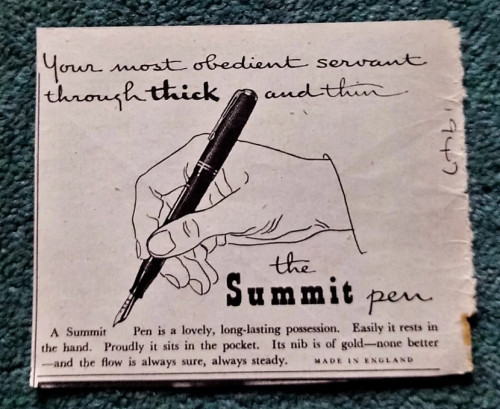 Your most obedient servant
through thick and thin
the
Summit pen
A Summit Pen is a lovely, long-lasting possession. Easily it rests in
the hand. Proudly it sits in the pocket. Its nib is of gold—none better
—and the flow is always sure, always steady. MADE IN ENGLAND